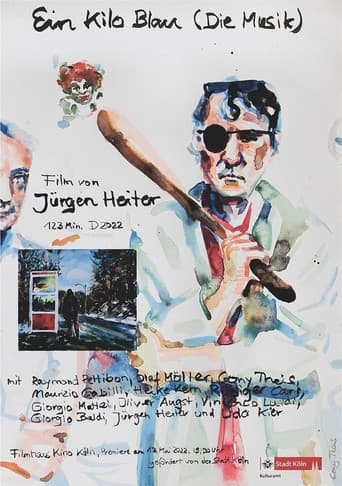 Ein Kilo Blau (Die Musik)
Film von
Jürgen Heiter
123 Min. D 2022
mit Raymond Pettibon, Olaf Möller, Gony Theis,
Maurizio Gabilli, Heike Kern, Rüdiger Carl,
Giorgio Mattei, Oliver Augst, Vincenzo
Giorgio Baldi, Jürgen Heiter und Udo Kier
Filmhaus Kino Köln, Premiere am 12. Mai 2022,
gefördert von der Stadt Köln
Stadt Köln
Kulturamt
Gony Theis